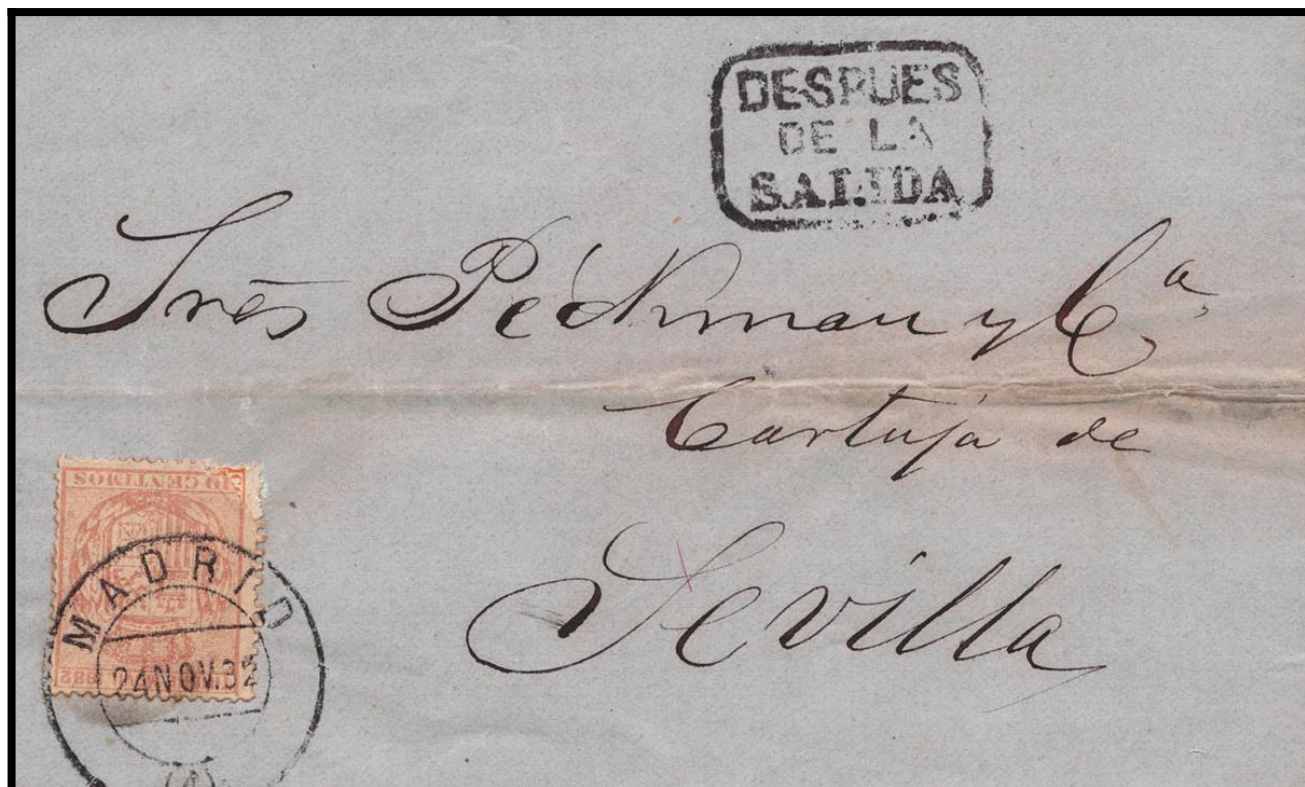 DESPUES
DE LA
SALIDA
Sres Pickman y Cª
Cartuja de
Sevilla
10 CENTIMOS
MADRID
24NOV.82
(4)